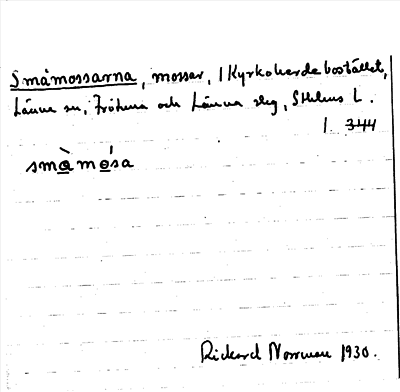 Småmossarna, mossar, 1 Kyrkoherdebostället,
Länna sn, Fröluna och Länna slg, Sthlms L.
1. 344
smàmósa
Rickard Norrman 1930.